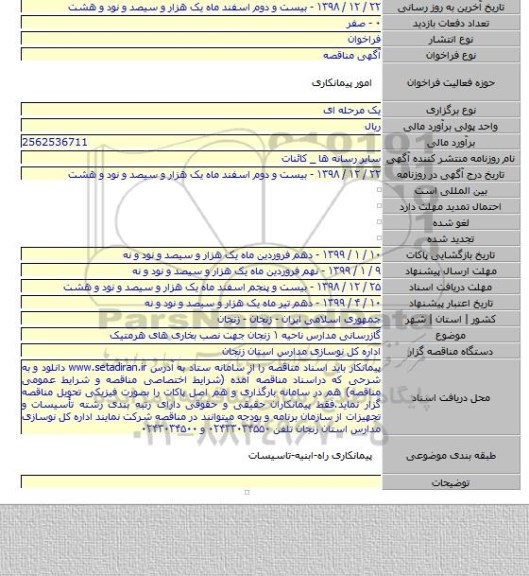 تاریخ آخرین به روز رسانی
۲۲ / ۱۲ / ۱۳۹۸ - بیست و دوم اسفند ماه یک هزار و سیصد و نود و هشت
تعداد دفعات بازدید
۰ - صفر
نوع انتشار
فراخوان
نوع فراخوان
آگهی مناقصه
حوزه فعالیت فراخوان
امور پیمانکاری
نوع برگزاری
یک مرحله ای
واحد پولی برآورد مالی
ریال
برآورد مالی
2562536711
نام روزنامه منتشر کننده آگهی
سایر رسانه ها _ کائنات
تاریخ درج آگهی در روزنامه
۲۲ / ۱۲ / ۱۳۹۸ - بیست و دوم اسفند ماه یک هزار و سیصد و نود و هشت
بین المللی است
احتمال تمدید مهلت دارد
لغو شده
تجدید شده
تاریخ بازگشایی پاکات
۱۰ / ۱ / ۱۳۹۹ - دهم فروردین ماه یک هزار و سیصد و نود و نه
مهلت ارسال پیشنهاد
۹ / ۱ / ۱۳۹۹ - نهم فروردین ماه یک هزار و سیصد و نود و نه
مهلت دریافت اسناد
۲۵ / ۱۲ / ۱۳۹۸ - بیست و پنجم اسفند ماه یک هزار و سیصد و نود و هشت
تاریخ اعتبار پیشنهاد
۱۰ / ۴ / ۱۳۹۹ - دهم تیر ماه یک هزار و سیصد و نود و نه
کشور | استان | شهر
جمهوری اسلامی ایران - زنجان - زنجان
موضوع
گازرسانی مدارس ناحیه ۱ زنجان جهت نصب بخاری های هرمتیک
دستگاه مناقصه گزار
اداره کل نوسازی مدارس استان زنجان
محل دریافت اسناد
پیمانکار باید اسناد مناقصه را از سامانه ستاد به آدرس www.setadiran.ir دانلود و به
شرحی که دراسناد مناقصه آمده (شرایط اختصاصی مناقصه و شرایط عمومی
مناقصه) هم در سامانه بارگذاری و هم اصل پاکات را بصورت فیزیکی تحویل مناقصه
گزار نماید.فقط پیمانکاران حقیقی و حقوقی دارای رتبه بندی رشته تأسیسات و
تجهیزات از سازمان برنامه و بودجه میتوانند در مناقصه شرکت نمایند اداره کل نوسازی
مدارس استان زنجان تلفن ۰۲۴۳۳۰۳۴۵۵۰ و ۰۲۴۳۰۳۴۵۰۰
طبقه بندی موضوعی
پیمانکاری راه-ابنیه-تاسیسات
توضیحات